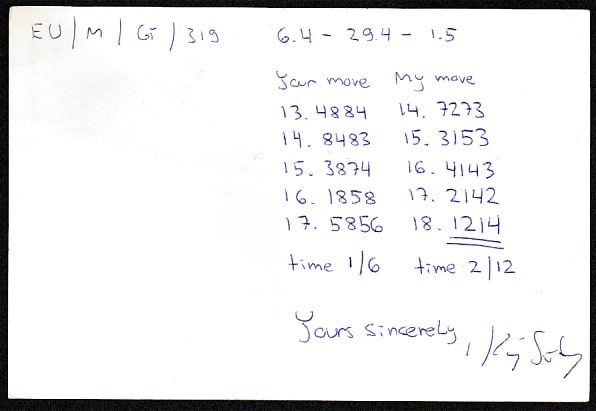 EU/M/GT/319 6.4 - 29.4 - 1.5
Your move My move
13. 4884 14. 7273
14. 8483 15. 3153
15. 3874 16. 4143
16. 1858 17. 2142
17. 5856 18. 1214
time 1/6 time 2/12
Yours sincerely,